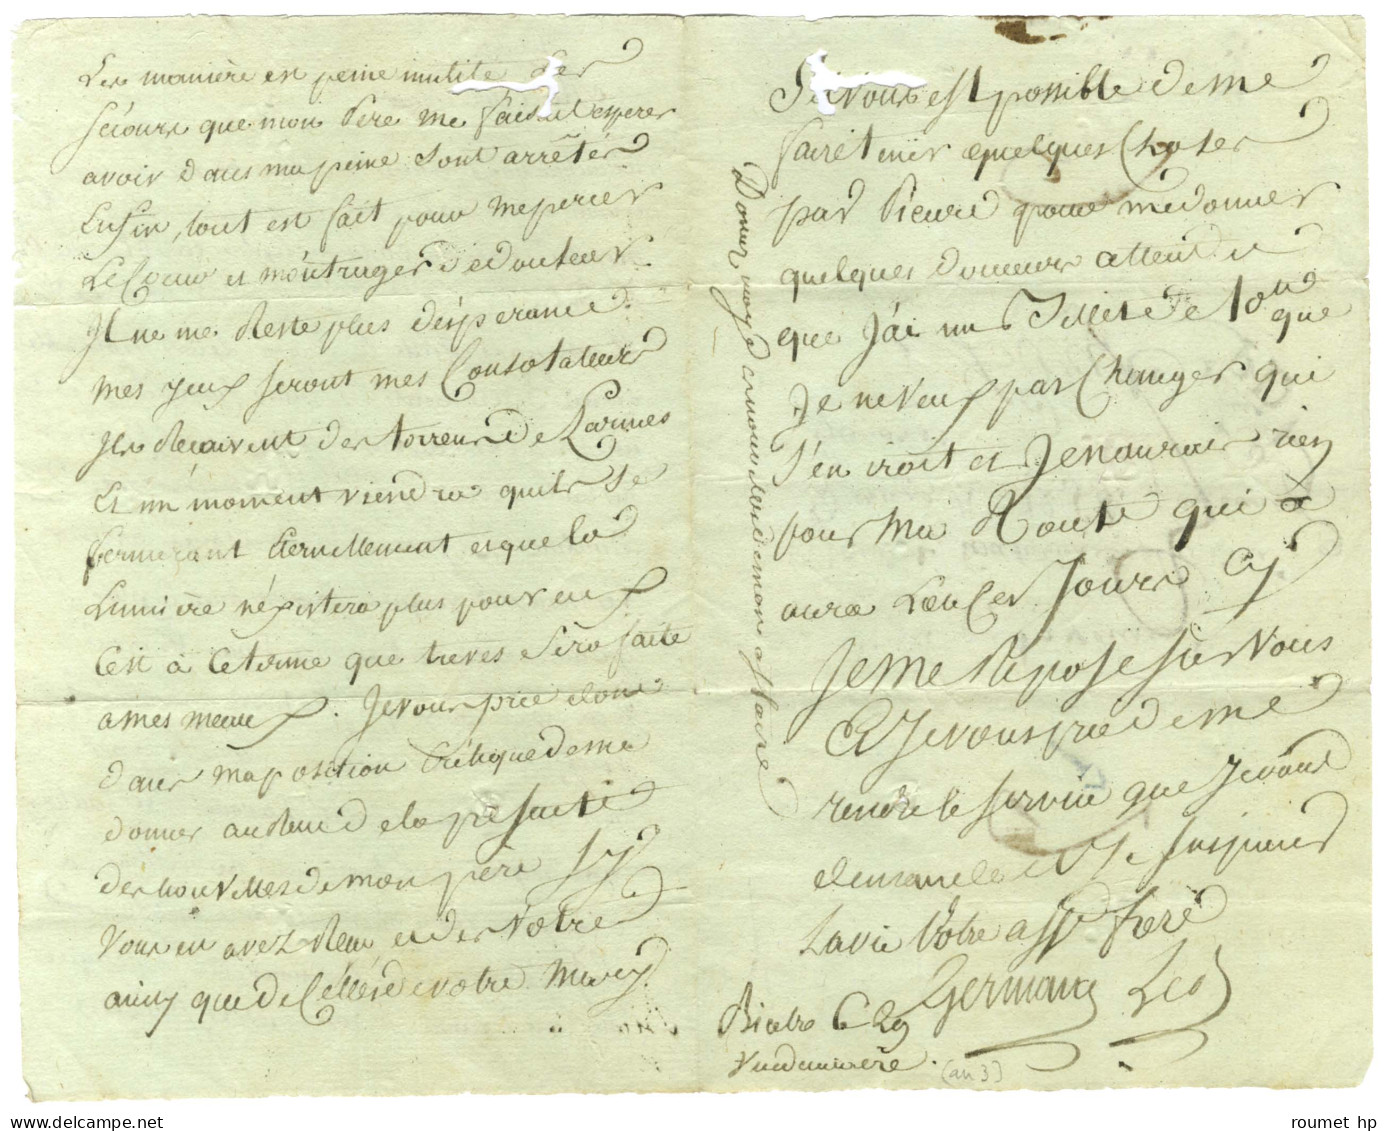 Les manière est peine inutile Les
sécours que mon Père me faidait esperer
avoir dans ma peine sont arrêtés
Enfin, tout est fait pour me percer
Le Coeur et
Il ne me Reste plus d'ésperance.
mes yeux seront mes Consolateurs
Ils Recoivent des torreurs de Larmes
Et un moment viendra quils se
fermerant Eternellement et que la
Lumière néxistera plus pour eux
C'est à ce terme que treves sera faite
a mes maux. Je vous prie donc
dans ma position Critique de me
donner au Recu de la présente
des nouvelles de mon père sy
vous en avez Recu et des vôtre
ainsy que de Céllés de votre Marÿ.
Sil vous est possible de me
faire tenir quelques Choses
par Pieure pour me donner
quelques douceurs attendu
que J'ai un Billet de 10 #
que
Je ne veux pas Changer qui
s'en iroit et Je naurais rien
pour ma Route qui à
aura Lieu ces Jours Cy
Je me Repose sur Vous
Et Je vous prie de me
rendre le service que Je vous
demande et Je suis pour
La vie Votre aff.é frere
Germain Leo
Bicetre Ce 29
Vendemiaire.
(an 3)
Donnez moy des nouvelles de mon affaire
roumet hp
delcampe.net